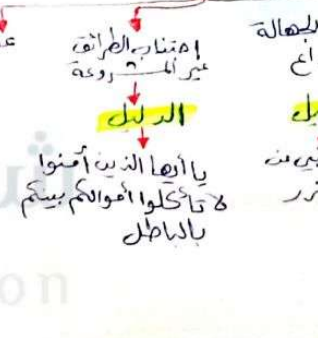 الجهالة
اجتناب الطرائق
غير المشروعة
الدليل
يا أيها الذين آمنوا
لا تأكلوا أموالكم بينكم
بالباطل